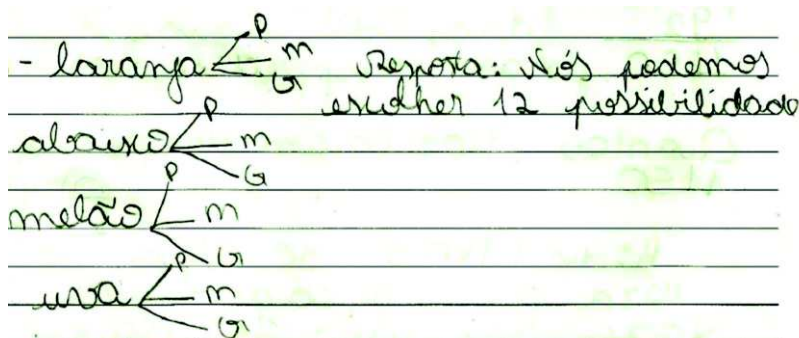 P
- laranja m Resposta: Nós podemos
G escolher 12 possibilidade
P
abaixo m
G
P
melão m
G
P
uva m
G